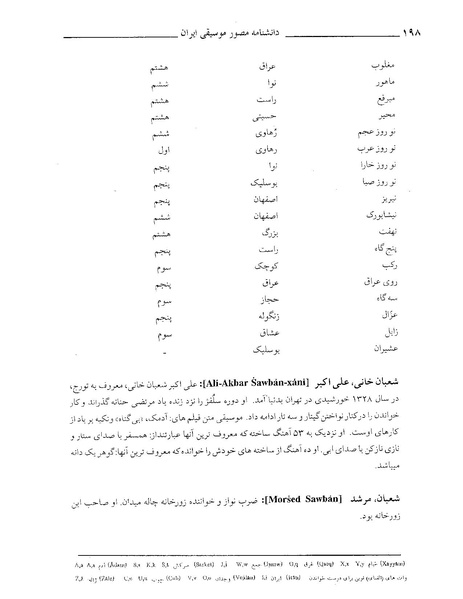 ۱۹۸ دانشنامه مصور موسیقی ایران
مغلوب عراق هشتم
ماهور نوا ششم
مبرقع راست هشتم
محیر حسینی هشتم
نو روز عجم رُهاوی ششم
نو روز عرب رهاوی اول
نو روز خارا نوا پنجم
نو روز صبا بوسلیک پنجم
نیریز اصفهان پنجم
نیشابورک اصفهان ششم
نهفت بزرگ هشتم
پنج گاه راست پنجم
رکب کوچک سوم
روی عراق عراق پنجم
سه گاه حجاز سوم
عزّال زنگوله پنجم
زابل عشاق سوم
عشیران بوسلیک -
شعبان خانی، علی اکبر [Ali-Akbar Šawbán-xáni]: علی اکبر شعبان خانی، معروف به تورج،
در سال ۱۳۲۸ خورشیدی در تهران بدنیا آمد. او دوره سلُفژ را نزد زنده یاد مرتضی حنانه گذراند و کار
خواندن را در کنار نواختن گیتار و سه تار ادامه داد. موسیقی متن فیلم های: آدمک، «پی گناه» و تکیه بر باد از
کارهای اوست. او نزدیک به ۵۳ آهنگ ساخته که معروف ترین آنها عبارتنداز: همسفر با صدای ستار و
نازی نازکن با صدای ابی. او ده آهنگ از ساخته های خودش را خوانده که معروف ترین آنها: گوهر یک دانه
میباشد.
شعبان، مرشد [Moršed Šawbán]: ضرب نواز و خواننده زورخانه چاله میدان. او صاحب این
زورخانه بود.